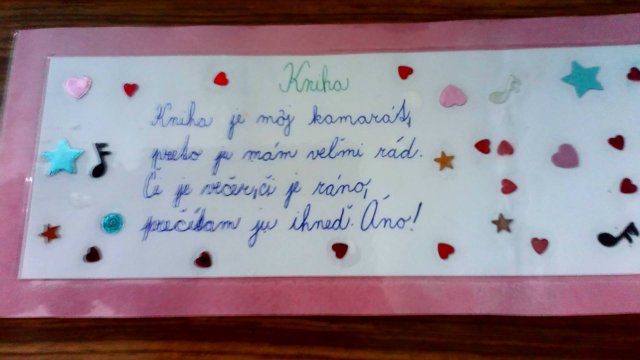 Kniha
Kniha je môj kamarát,
preto ju mám veľmi rád.
Či je večer, či je ráno,
prečítam ju ihneď. Áno!